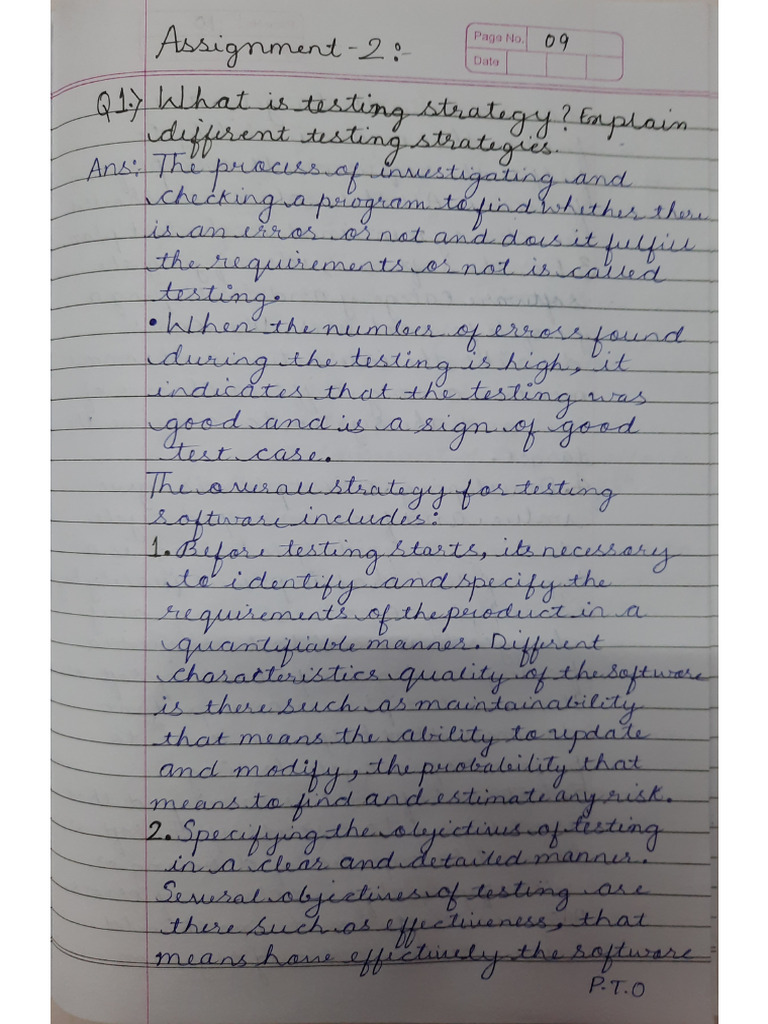 Assignment-2:-
Page No. 09
Date
Q1.) What is testing strategy? Explain
different testing strategies.
Ans: The process of investigating and
checking a program to find whether there
is an error or not and does it fulfill
the requirements or not is called
testing.
• When the number of errors found
during the testing is high, it
indicates that the testing was
good and is a sign of good
test case.
The overall strategy for testing
software includes:
1. Before testing starts, its necessary
to identify and specify the
requirements of the product in a
quantifiable manner. Different
characteristics quality of the software
is there such as maintainability
that means the ability to update
and modify, the probability that
means to find and estimate any risk.
2. Specifying the objectives of testing
in a clear and detailed manner.
Several objectives of testing are
there such as effectiveness, that
means how effectively the software
P.T.O